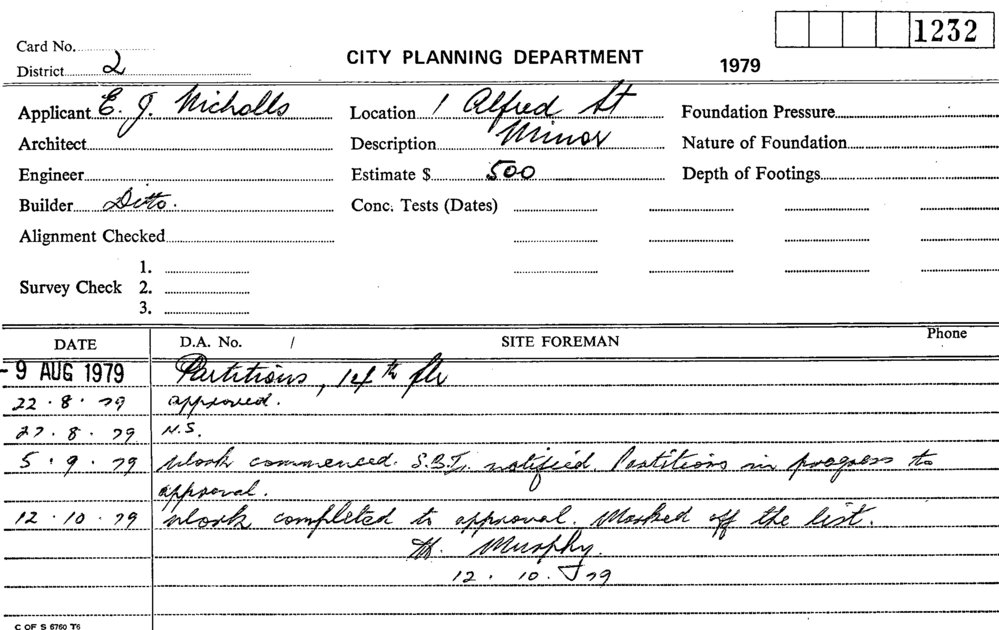 1232
Card No.
District 2
CITY PLANNING DEPARTMENT
1979
Applicant E. J. Nicholls
Location 1 Alfred St
Foundation Pressure
Architect
Description Minor
Nature of Foundation
Engineer
Estimate $ 500
Depth of Footings
Builder Ditto.
Conc. Tests (Dates)
Alignment Checked
1.
Survey Check 2.
3.
DATE
D.A. No. /
SITE FOREMAN
Phone
-9 AUG 1979 Partitions, 14th flr
22.8.79 approved.
27.8.79 N.S.
5.9.79 Work commenced. S.B.I. notified Partitions in progress to
approval.
12.10.79 Work completed to approval. Marked off the list.
Murphy.
12.10.79
C OF S 6760 T6